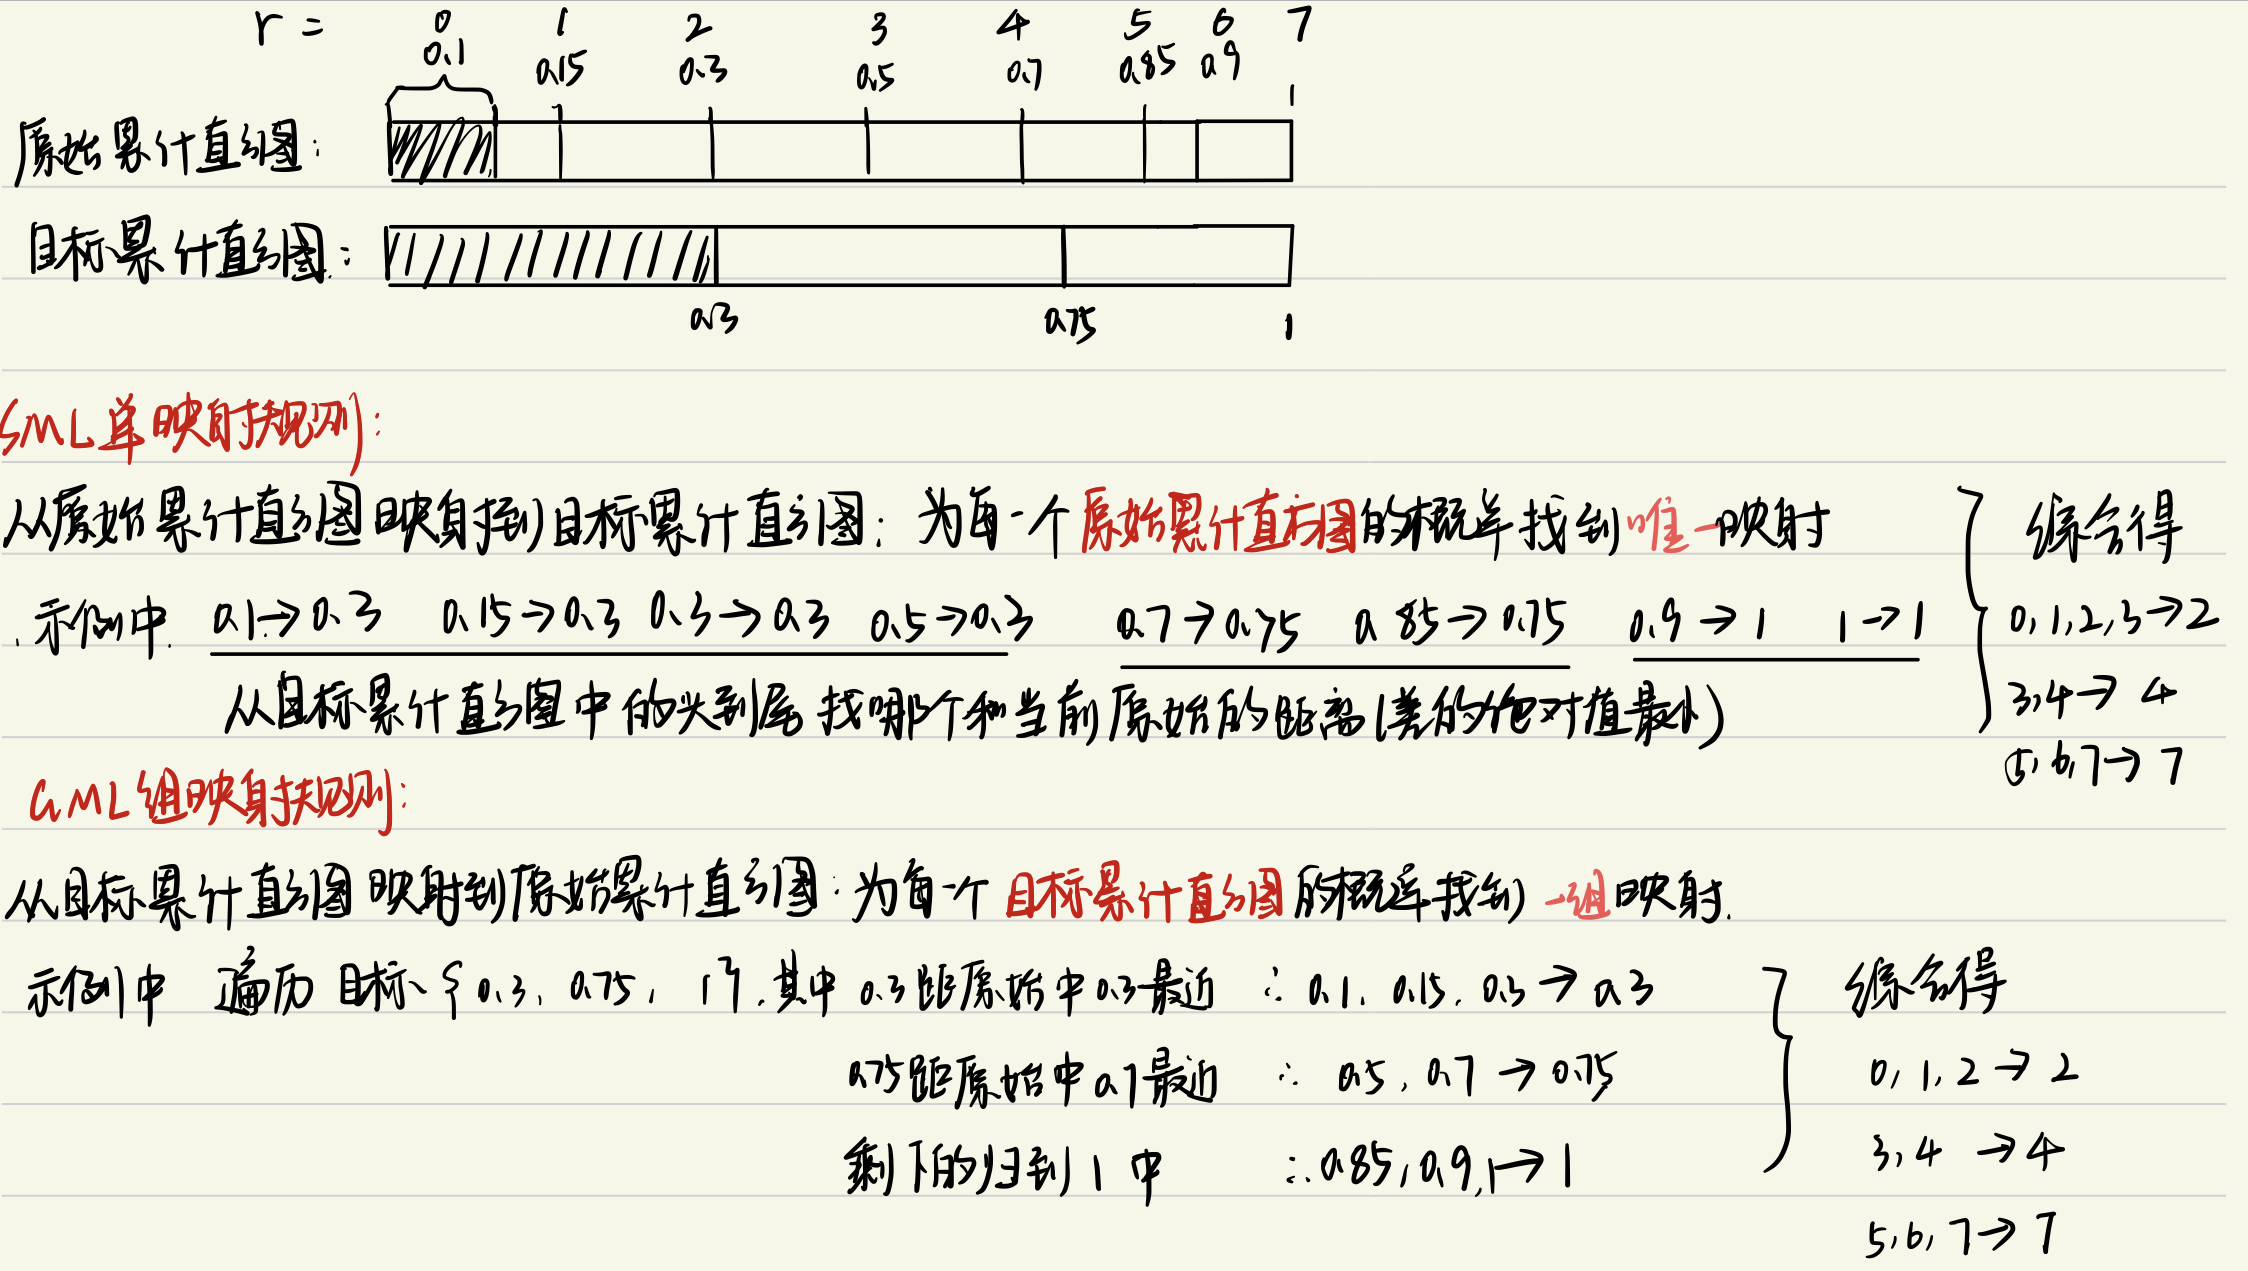 r = 0 1 2 3 4 5 6 7
0.1 0.15 0.3 0.5 0.7 0.85 0.9 1
原始累计直方图:
目标累计直方图:
0.3 0.75 1
SML单映射规则:
从原始累计直方图映射到目标累计直方图: 为每一个原始累计直方图的概率找到唯一映射
示例中. 0.1→0.3 0.15→0.3 0.3→0.3 0.5→0.3 0.7→0.75 0.85→0.75 0.9→1 1→1
从目标累计直方图中的头到尾找哪个和当前原始的距离(差的绝对值最小)
综合得
0,1,2,3→2
3,4→4
5,6,7→7
GML组映射规则:
从目标累计直方图映射到原始累计直方图: 为每一个目标累计直方图的概率找到一组映射.
示例中 遍历目标{0.3, 0.75, 1}. 其中0.3距原始中0.3最近 ∴ 0.1, 0.15, 0.3→0.3
0.75距原始中0.7最近 ∴ 0.5, 0.7→0.75
剩下的归到1中 ∴ 0.85, 0.9, 1→1
综合得
0,1,2→2
3,4→4
5,6,7→7